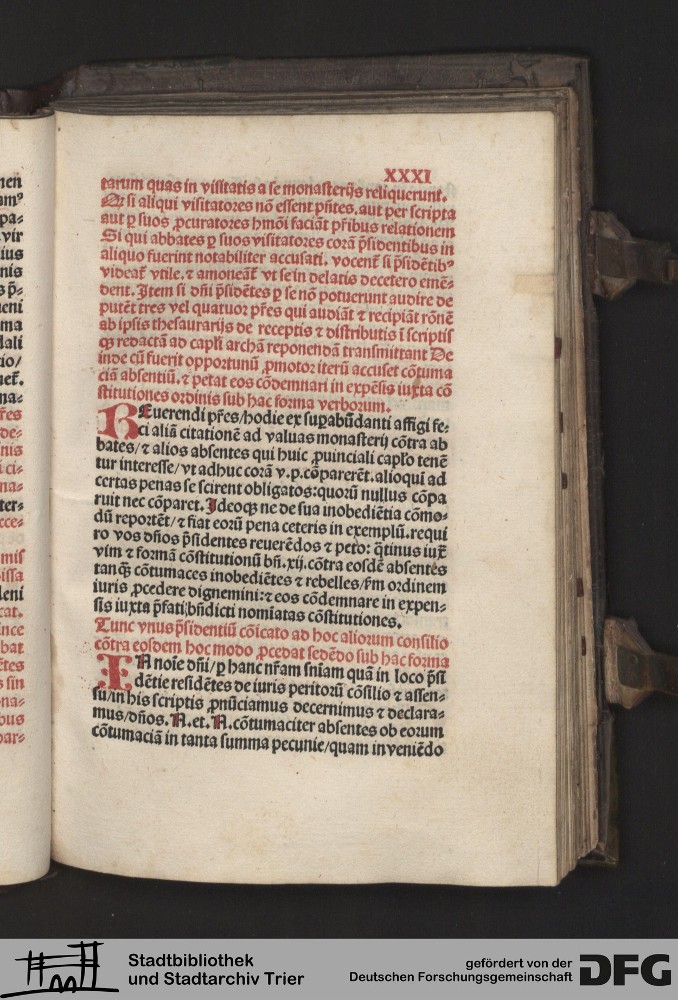 XXXI
tarum quas in visitatis a se monasterijs reliquerunt.
Qͥ si aliqui visitatores nō essent p̄ntes. aut per scripta
aut ꝑ suos ꝓcuratores hmōi faciāt pr̄ibus relationem
Si qui abbates ꝑ suos visitatores corā p̄sidentibus in
aliquo fuerint notabiliter accusati. vocent̄ si p̄sidētibꝰ
videat̄ vtile. ⁊ amoneāt vt se in delatis decetero emē⸗
dent. Item si dn̄i p̄sidētes ꝑ se nō potuerunt audire de
putēt tres vel quatuor pr̄es qui audiāt ⁊ recipiāt rōnē
ab ipsis thesaurarijs de receptis ⁊ distributis ī scriptis
qꝫ redactā ad capl̄i archā reponendā transmittant De
inde cū fuerit opportunū ꝓmotor iterū accuset cōtuma
ciā absentiū. ⁊ petat eos cōdemnari in expēsis iuxta cō
stitutiones ordinis sub hac forma verborum.
REuerendi pr̄es/hodie ex supabūdanti affigi fe⸗
ci aliā citationē ad valuas monasterij cōtra ab
bates/⁊ alios absentes qui huic ꝓuinciali capl̄o tenē
tur interesse/vt adhuc corā v.p.cōparerēt.alioqui ad
certas penas se scirent obligatos:quorū nullus cōpa
ruit nec cōparet. Ideoqꝫ ne de sua inobediētia cōmo⸗
dū reportēt/⁊ fiat eorū pena ceteris in exemplū.requi
ro vos dn̄os p̄sidentes reuerēdos ⁊ peto: q̄tinus iux̄
vim ⁊ formā cōstitutionū bn̄.xij.cōtra eosdē absentes
tanqꝫ cōtumaces inobediētes ⁊ rebelles/fm ordinem
iuris ꝓcedere dignemini:⁊ eos cōdemnare in expen⸗
sis iuxta p̄fati bn̄dicti nomīatas cōstitutiones.
Tunc vnus p̄sidentiū cōicato ad hoc aliorum consilio
cōtra eosdem hoc modo ꝓcedat sedēdo sub hac forma
IN noīe dn̄i/ꝑ hanc nr̄am sn̄iam quā in loco p̄si
dētie residētes de iuris peritorū cōsilio ⁊ assen⸗
su/in his scriptis ꝓnūciamus decernimus ⁊ declara⸗
mus/dn̄os.N.et.N.cōtumaciter absentes ob eorum
cōtumaciā in tanta summa pecunie/quam in veniēdo
Stadtbibliothek
und Stadtarchiv Trier
gefördert von der
Deutschen Forschungsgemeinschaft
DFG